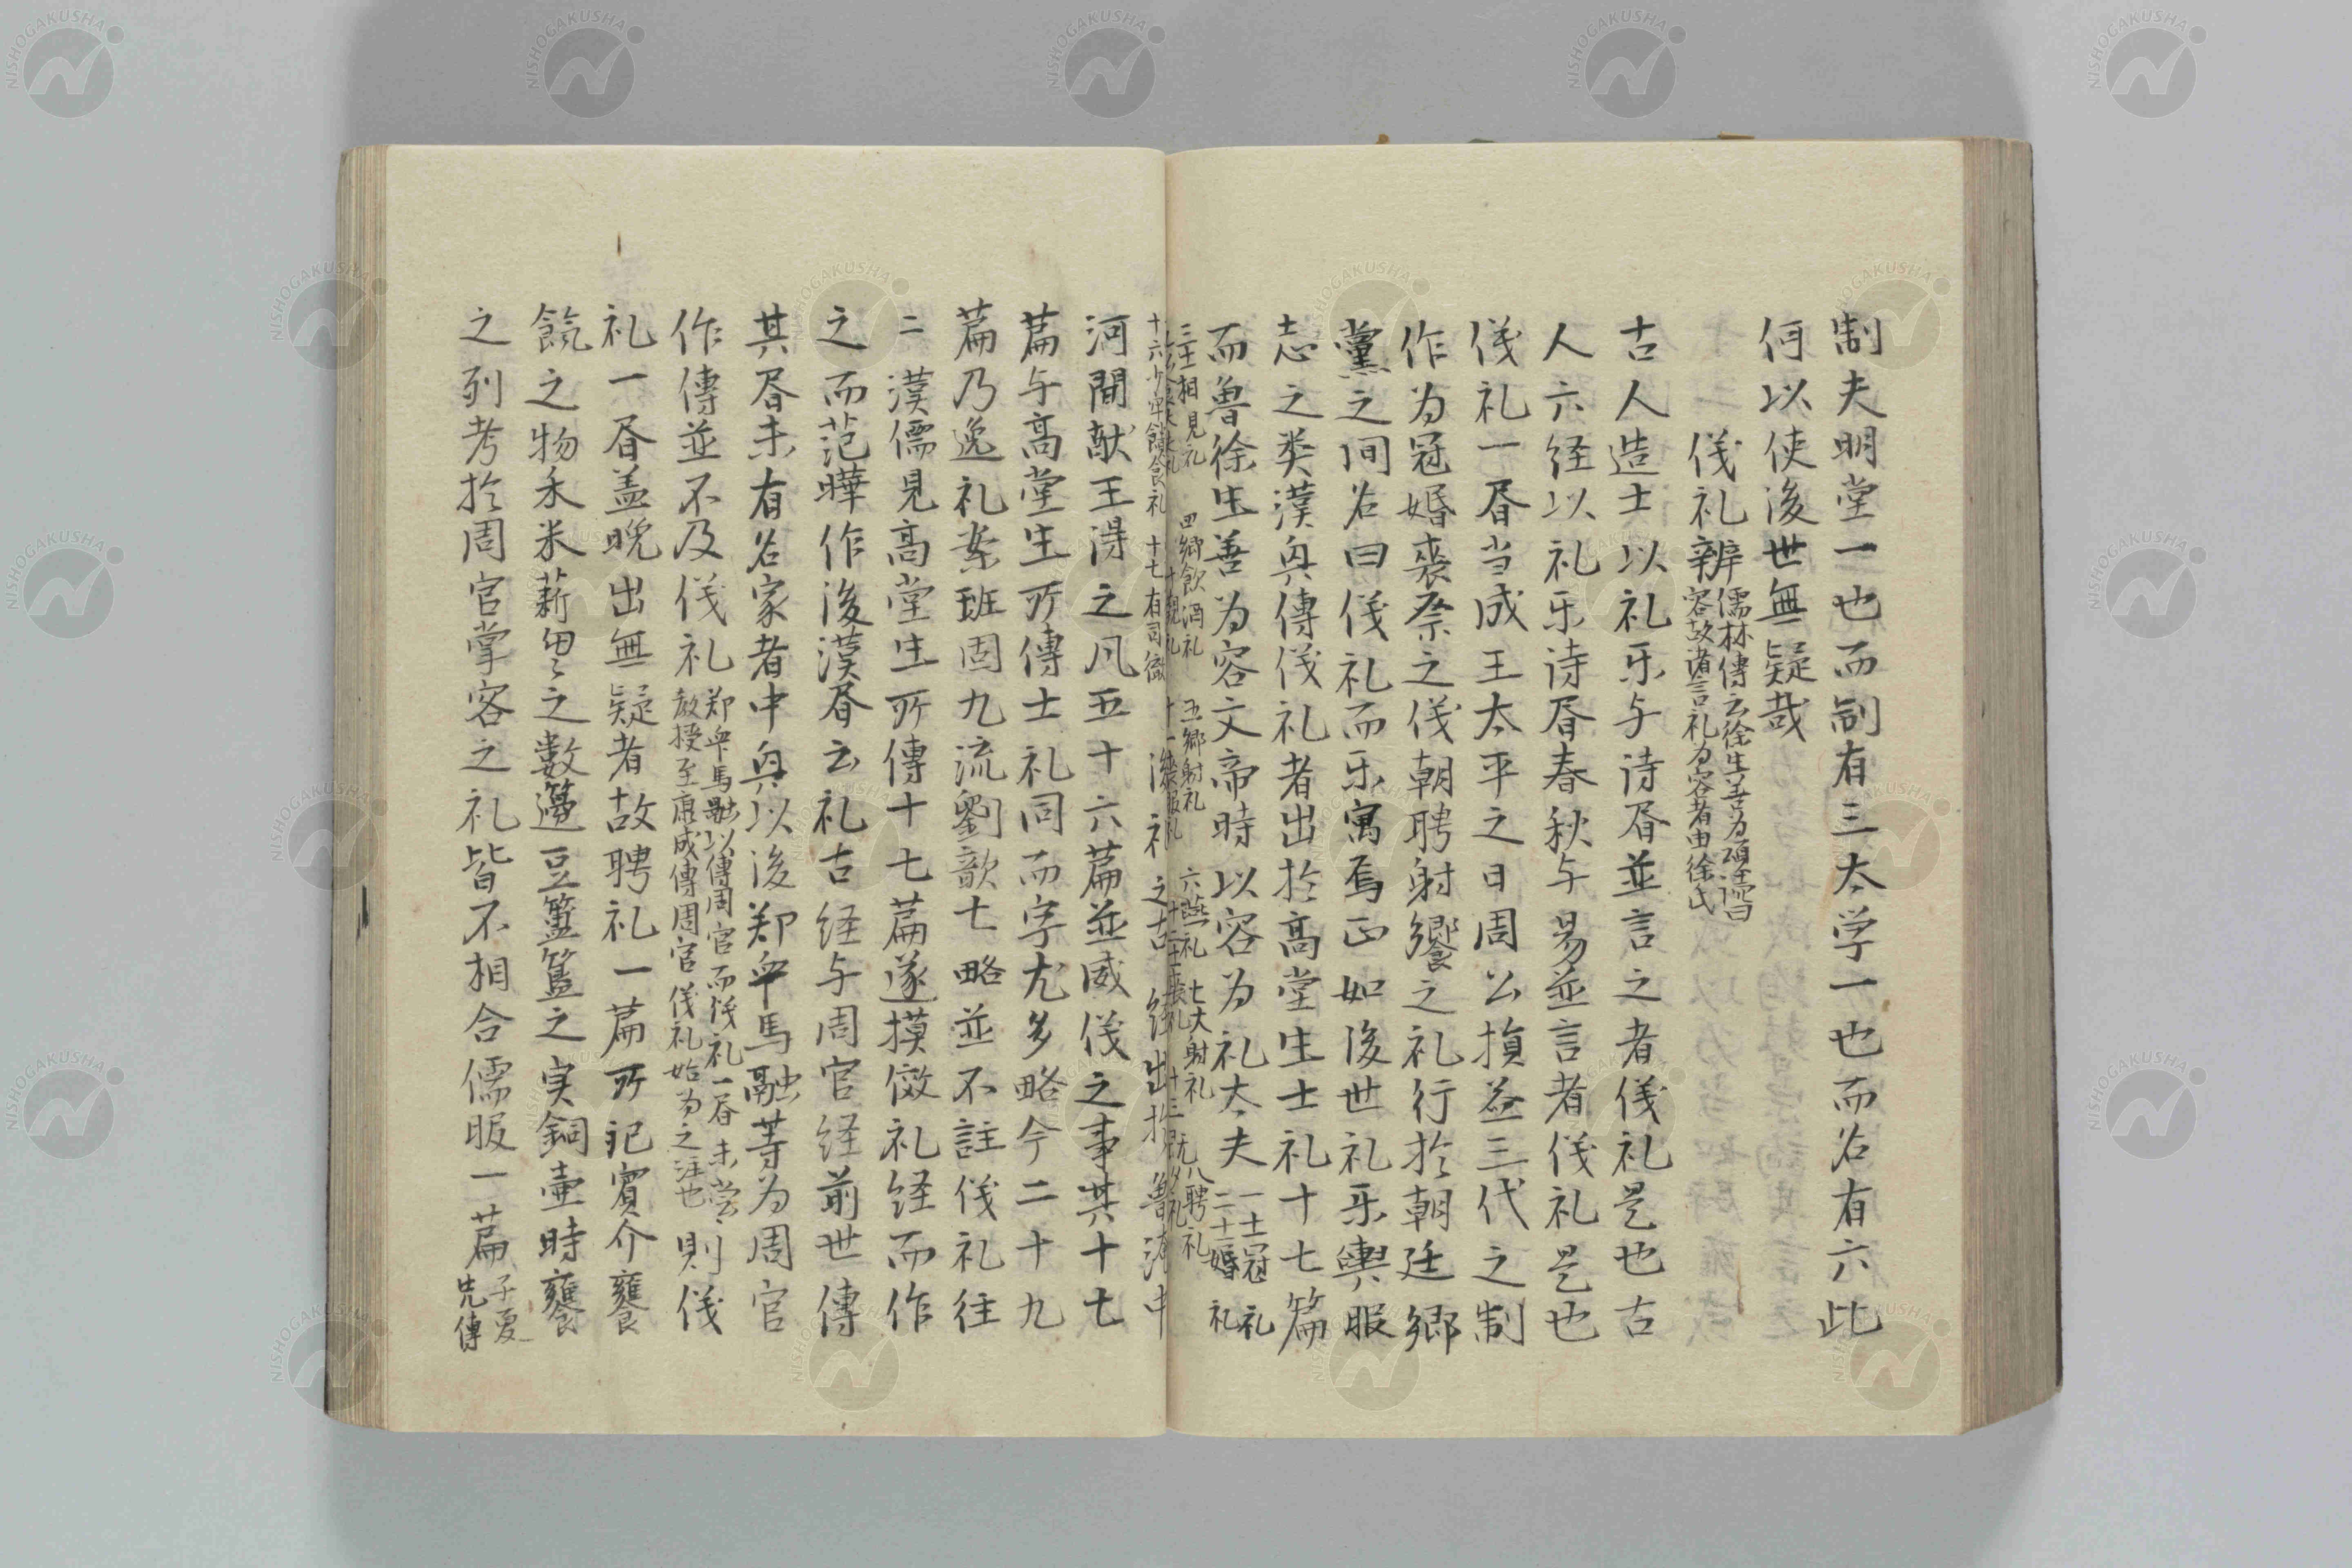 制夫明堂一也而制有三太学一也而名有六此
何以使後世無疑哉
儀礼辨
儒林傳云徐生善为
容故諸言礼为容者由徐氏
古人造士以礼乐与诗昏並言之者儀礼是也古
人六经以礼乐诗昏春秋与易並言者儀礼是也
儀礼一昏当成王太平之日周公損益三代之制
作为冠婚喪祭之儀朝聘射饗之礼行扵朝廷鄉
黨之间名曰儀礼而乐寓焉正如後世礼乐輿服
志之类漢興傳儀礼者出扵高堂生士礼十七篇
而魯徐生善为容文帝時以容为礼大夫
一士冠礼
二士婚礼
三士相見礼 四鄉飲酒礼 五鄉射礼 六燕礼 七大射礼 八聘礼
十六少牢饋食礼 十七有司徹
河間献王得之凡五十六篇並威儀之事其十七
篇与高堂生所傳士礼同而字尤多略今二十九
篇乃逸礼案班固九流劉歆七略並不註儀礼往
二漢儒見高堂生所傳十七篇遂摸倣礼经而作
之而范曄作後漢昏云礼古经与周官经前世傳
其昏未有名家者中興以後郑衆馬融等为周官
作傳並不及儀礼
郑衆馬融以傳周官而儀礼一昏未嘗
教授至康成傳周官儀礼始为之注也
則儀
礼一昏盖晩出無疑者故聘礼一篇所记賓介饔
餼之物禾米薪芻之数籩豆簠簋之実鉶壷時饔
之列考扵周官掌客之礼皆不相合儒服一篇
子夏
先傳